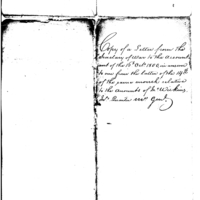 Copy of a Letter from the
Secretary of War to the Account
ant of the 16 Oct 1802, in answer
to one from the latter of the 14th
of the same month relative
to the accounts of Jno Wilkins
Jr. Quarter Mr Genl.